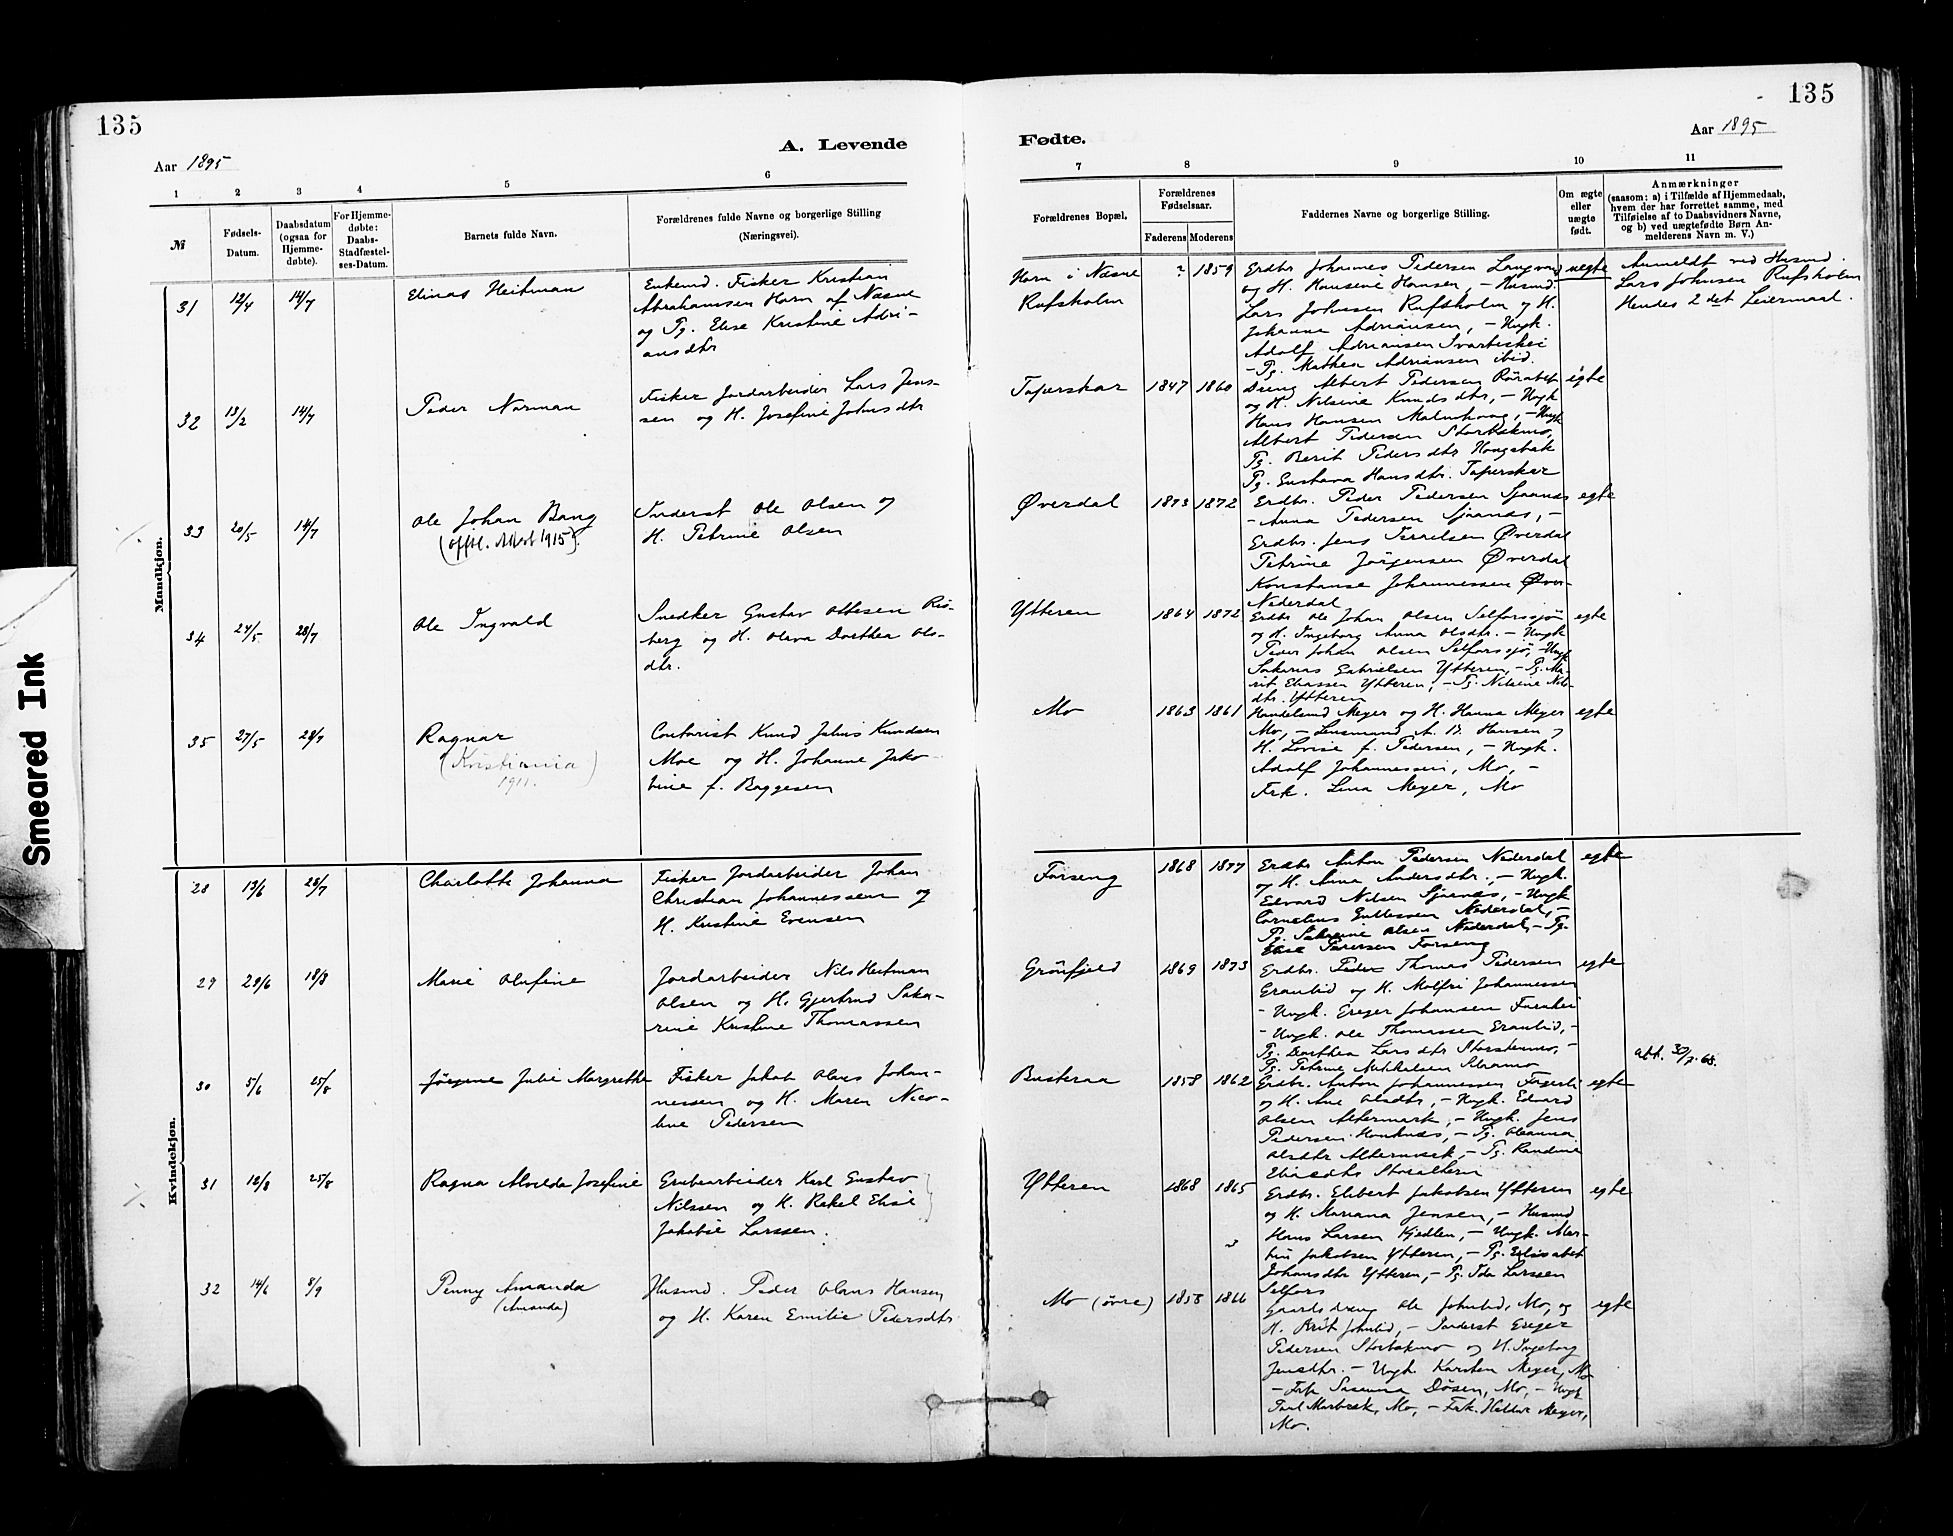 135
135
A. Levende
Fødte.
Aar 1895
Aar 1895
1 2 3 4 5 6
7 8 9 10 11
№
Fødsels-
Datum.
Daabsdatum
(ogsaa for
Hjemme-
døbte).
For Hjemme-
døbte:
Daabs-
Stadfæstel-
ses-Datum.
Barnets fulde Navn.
Forældrenes fulde Navne og borgerlige Stilling
(Næringsvei).
Forældrenes Bopæl.
Forældrenes
Fødselsaar.
Faderens Moderens
Faddernes Navne og borgerlige Stilling.
Om ægte
eller
uægte
født.
Anmærkninger
(saasom: a) i Tilfælde af Hjemmedaab,
hvem der har forrettet samme, med
Tilføielse af to Daabsvidners Navne,
og b) ved uægtefødte Børn An-
melderens Navn m. V.)
Mandkjøn.
31 12/4 14/7
Elinas Heitman
Enkemd. Fisker Kristian
Abrahamsen Horn af Næsne
og Pg. Elise Kristine Adri-
ansdtr
Horn i Næsne
Rufsholm
? 1859
Erdbr Johannes Pedersen Langvad
og H. Hansine Hansen, – Husmd.
Lars Johnsen Rufsholm og H.
Johanna Adriansen, – Ungk.
Adolf Adriansen Svartishei
– Pg. Mathea Adriansen ibid.
uegte
Anmeldt ved Husmd.
Lars Johnsen Rufsholm
Hendes 2det Leiermaal.
32 13/2 14/7
Peder Norman
Fisker Jordarbeider Lars Jens-
sen og H. Josefine Johnsdtr
Taperskar
1847 1860
Dreng Albert Pedersen
og H. Nilsine Knudsdtr, – Ungk
Hans Hansen Malmhaug, – Ungk
Albert Pedersen Storbækmo,
Pg. Berit Pedersdtr Haugabæk
Pg. Gustava Hansdtr. Taperskar
egte
33 20/5 14/7
Ole Johan Bang
1915).
Inderst Ole Olsen og
H. Petrine Olsen
Øverdal
1873 1872
Erdbr. Peder Pedersen Sjaanæs
– Anna Pedersen Sjaanæs, –
Erdbr. Jens Øverdal
Petrine Jørgensen Øverdal
Konstanse Johannessen Øver-
Nederdal
egte
34 24/5 28/7
Ole Ingvald
Snedker Gustav Ottesen Ris-
berg og H. Oleva Dorthea Ols-
dtr.
Ytteren
1864 1872
Erdbr Ole Johan Olsen Selforssjø
og H. Ingeborg Anna Olsdtr. – Ungk
Peder Johan Olsen Selforssjø, – Ungk
Sakarias Gabrielsen Ytteren, – Pg. Ma-
rit Eliassen Ytteren, – Pg. Nilsine Nils-
dtr. Ytteren
egte
35 27/5 28/7
Ragnar
(Kristiania)
1911.
Contorist Knud Julius Knudsen
Moe og H. Johanne Jako-
bine f. Baggesen
Mo
1863 1861
Handelsmd Meyer og H. Hanna Meyer
Mo, – Lensmand A. B. Hansen og
H. Lovise f. Pedersen, – Ungk.
Adolf Johannessen, Mo, –
Frk. Lina Meyer, Mo
egte
Kvindekjøn.
28 13/6 28/7
Charlotte Johanna
Fisker Jordarbeider Johan
Christian Johannessen og
H. Kristine Evensen
Forseng
1868 1877
Erdbr Anton Pedersen Nederdal
og H. Anna Andersdtr., – Ungk.
Edvard Nilsen Sjaanæs, – Ungk
Cornelius Nederdal, –
Pg. Olsen Nederdal, – Pg.
Elise Forseng
egte
29 29/6 18/8
Marie Olufine
Jordarbeider Nils Heitman
Olsen og H. Gjertrud Saka-
rine Kristine Thomassen
Grønfjeld
1869 1873
Erdbr. Peder Thomas Pedersen
Granlid og H. Molfri Johannessen
– Ungk. Greger Johansen
– Ungk. Ole Thomassen Granlid, –
Pg. Dorthea Larsdtr Storstenmo, –
Pg. Petrine Mikkelsen
egte
30 5/6 25/8
Jørgine Julie Margrethe
Fisker Jakob Olaus Johan-
nessen og H. Maren Nico-
line Pedersen
Busteraa
1858 1862
Erdbr. Anton Johannessen Fagerli
og H. Ane Olsdtr, – Ungk. Edvard
Olsen Altermark, – Ungk. Jens
Pedersen Hauknæs, – Pg. Oleanna
Olsdtr Altermark, – Pg. Randine
Eliasdtr
egte
att. 30/7. 68.
31 18/8 25/8
Ragna Alvilda Josefine
Grubearbeider Karl Gustav
Nilssen og H. Rakel Elise
Jakobie Larssen.
Ytteren
1868 1865
Erdbr. Elibert Jakobsen Ytteren
og H. Mariana Jensen, – Husmd
Hans Larsen Kjedlen, – Ungk. Mar-
tin Jakobsen Ytteren, – Pg. Elisabet
Johansdtr Ytteren, – Pg. Ida Larssen
Selfors
egte
32 14/6 8/9
Penny Amanda
(Amanda)
Husmd. Peder Olaus Hansen
og H. Karen Emilie Pedersdtr
Mo (øvre)
1858 1866
Gaardsdreng Ole Johnlid, Mo, og
H. Brit Johnlid, – Inderst Greger
Pedersen Storbækmo og H. Ingeborg
Jensdtr. – Ungk. Karsten Meyer, Mo
– Frk Susanna Døsen, Mo, – Ungk
Paul Morbæk, Mo, – Frk. Meyer,
Mo.
egte
Smeared Ink